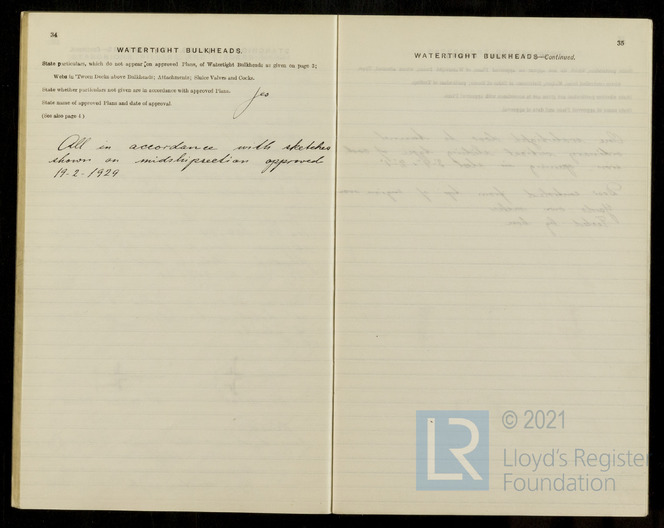 34
WATERTIGHT BULKHEADS.
State particulars, which do not appear on approved Plans, of Watertight Bulkheads as given on page 3;
Webs in 'Tween Decks above Bulkheads; Attachments; Sluice Valves and Cocks.
State whether particulars not given are in accordance with approved Plans.
Yes
State name of approved Plans and date of approval.
(See also page 4)
All in accordance with sketches
shown on midship section approved
19-2-1929
35
WATERTIGHT BULKHEADS—Continued.
LR
© 2021
Lloyd's Register
Foundation